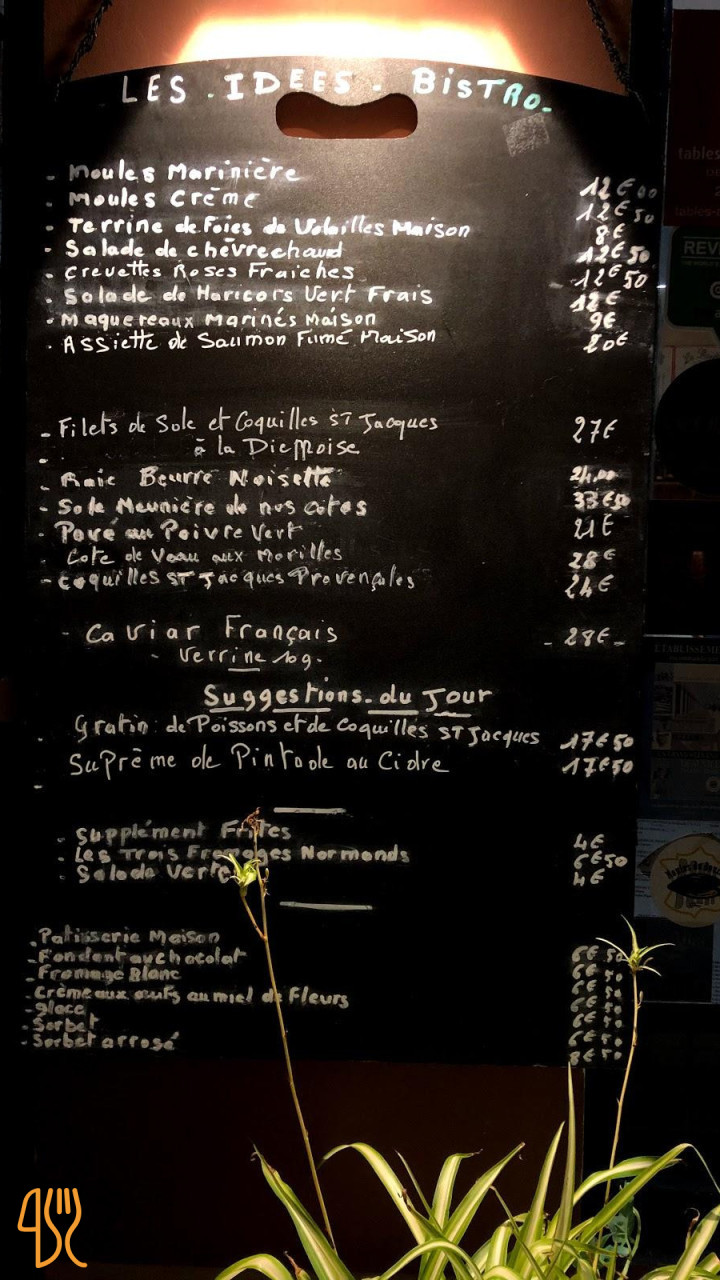 LES . IDEES . BiSTRO.
- Moules Marinière 12€00
- Moules Crème 12€50
- Terrine de Foies de Volailles Maison 8€
- Salade de chèvrechaud 12€50
- Crevettes Roses Fraiches 12€50
- Salade de Haricots Vert Frais 12€
- Maquereaux Marinés Maison 9€
- Assiette de Saumon Fumé Maison 20€
- Filets de Sole et Coquilles ST Jacques 27€
- à la Dieppoise
- Raie Beurre Noisette 24,00
- Sole Meunière de nos cotes 33€50
- Pavé au Poivre Vert 21€
Cote de Veau aux Morilles 28€
- Coquilles ST Jacques Provençales 24€
- Caviar Français - 28€ -
- Verrine 10g.
Suggestions du Jour
- Gratin de Poissons et de Coquilles ST Jacques 17€50
Suprème de Pintade au Cidre 17€50
- Supplément Frites 4€
- Les Trois Fromages Normands 6€50
- Salade Verte 4€
- Patisserie Maison
- Fondant au chocolat 6€50
- Fromage Blanc 6€50
- Crème aux œufs au miel de Fleurs 6€50
- glace 6€50
- Sorbet 6€50
- Sorbet arrosé 8€50
tables
REV
ETABLISSEME